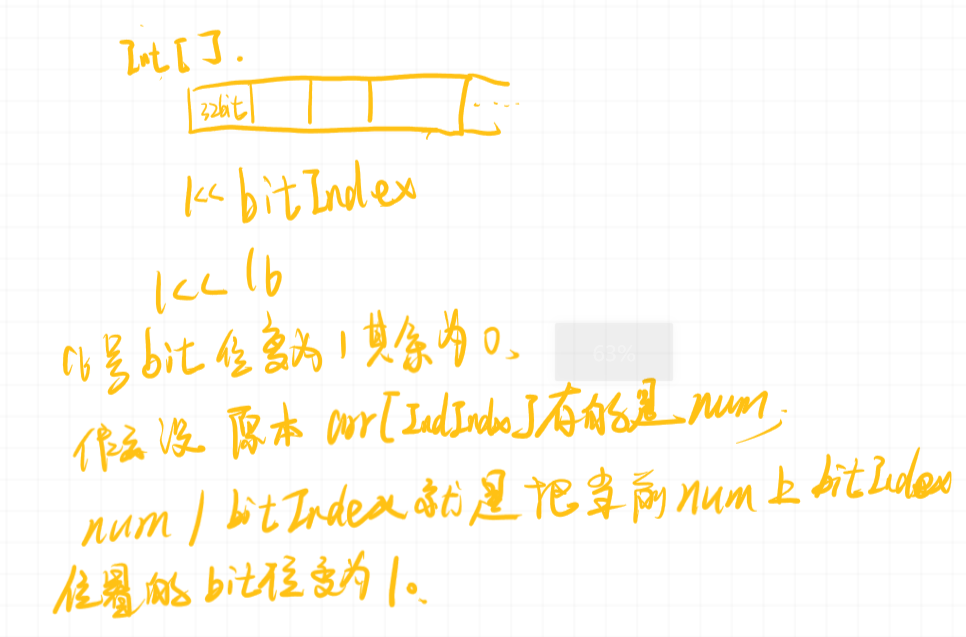 Int[].
32bit
1<< bitIndex
1<< 16
16号bit位变为1其余为0、
63%
假设 原本 arr[IndIndex]存的是num,
num / bitIndex就是把当前num上bitIndex
位置的bit位变为1。